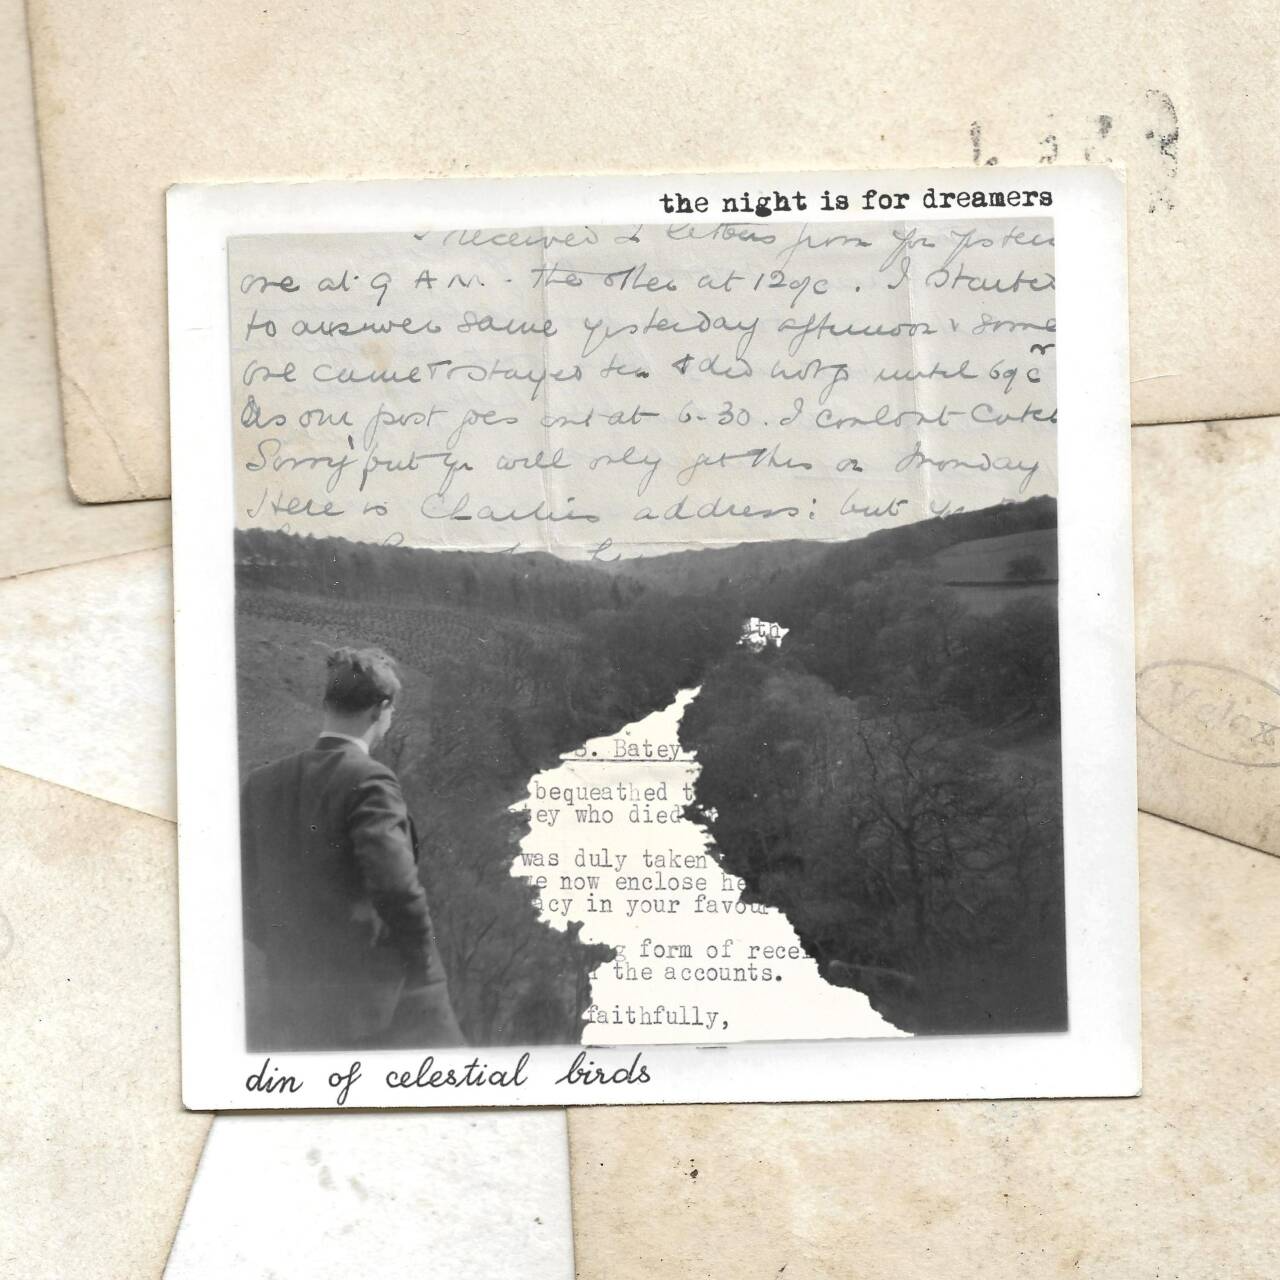 the night is for dreamers
received 2 letters from you
one at 9 A M. - the other at 12 oc. I started
to answer same yesterday afternoon & some
one came to stayed tea & did not go until 6 oc
As our post goes out at 6-30. I couldn't catch
Sorry but yr will only get this on Monday
Here is Charlie's address: but
th
S. Batey
bequeathed t
tey who died
was duly taken
we now enclose he
acy in your favour
g form of recei
the accounts.
faithfully,
din of celestial birds
Velox